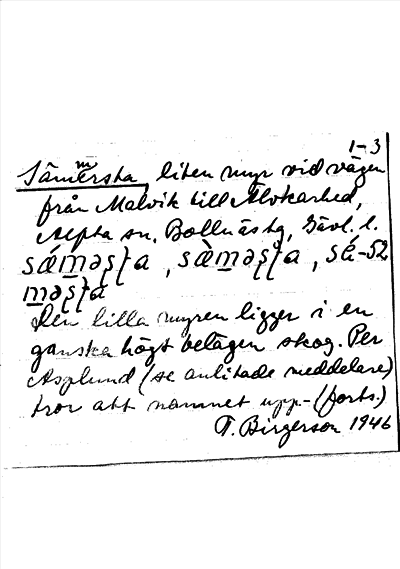 1-3
Sämmersta, liten myr vid vägen
från Malvik till Älvkarhed,
Alfta sn. Bollnäs tg, Gävl. l.
sǽm̲əşţa, sæ̀m̲əşţa, sǽ-52
m̲əşţa
Den lilla myren ligger i en
ganska högt belägen skog. Per
Asplund (se anlitade meddelare)
tror att namnet upp- (forts.)
T. Birgerson 1946